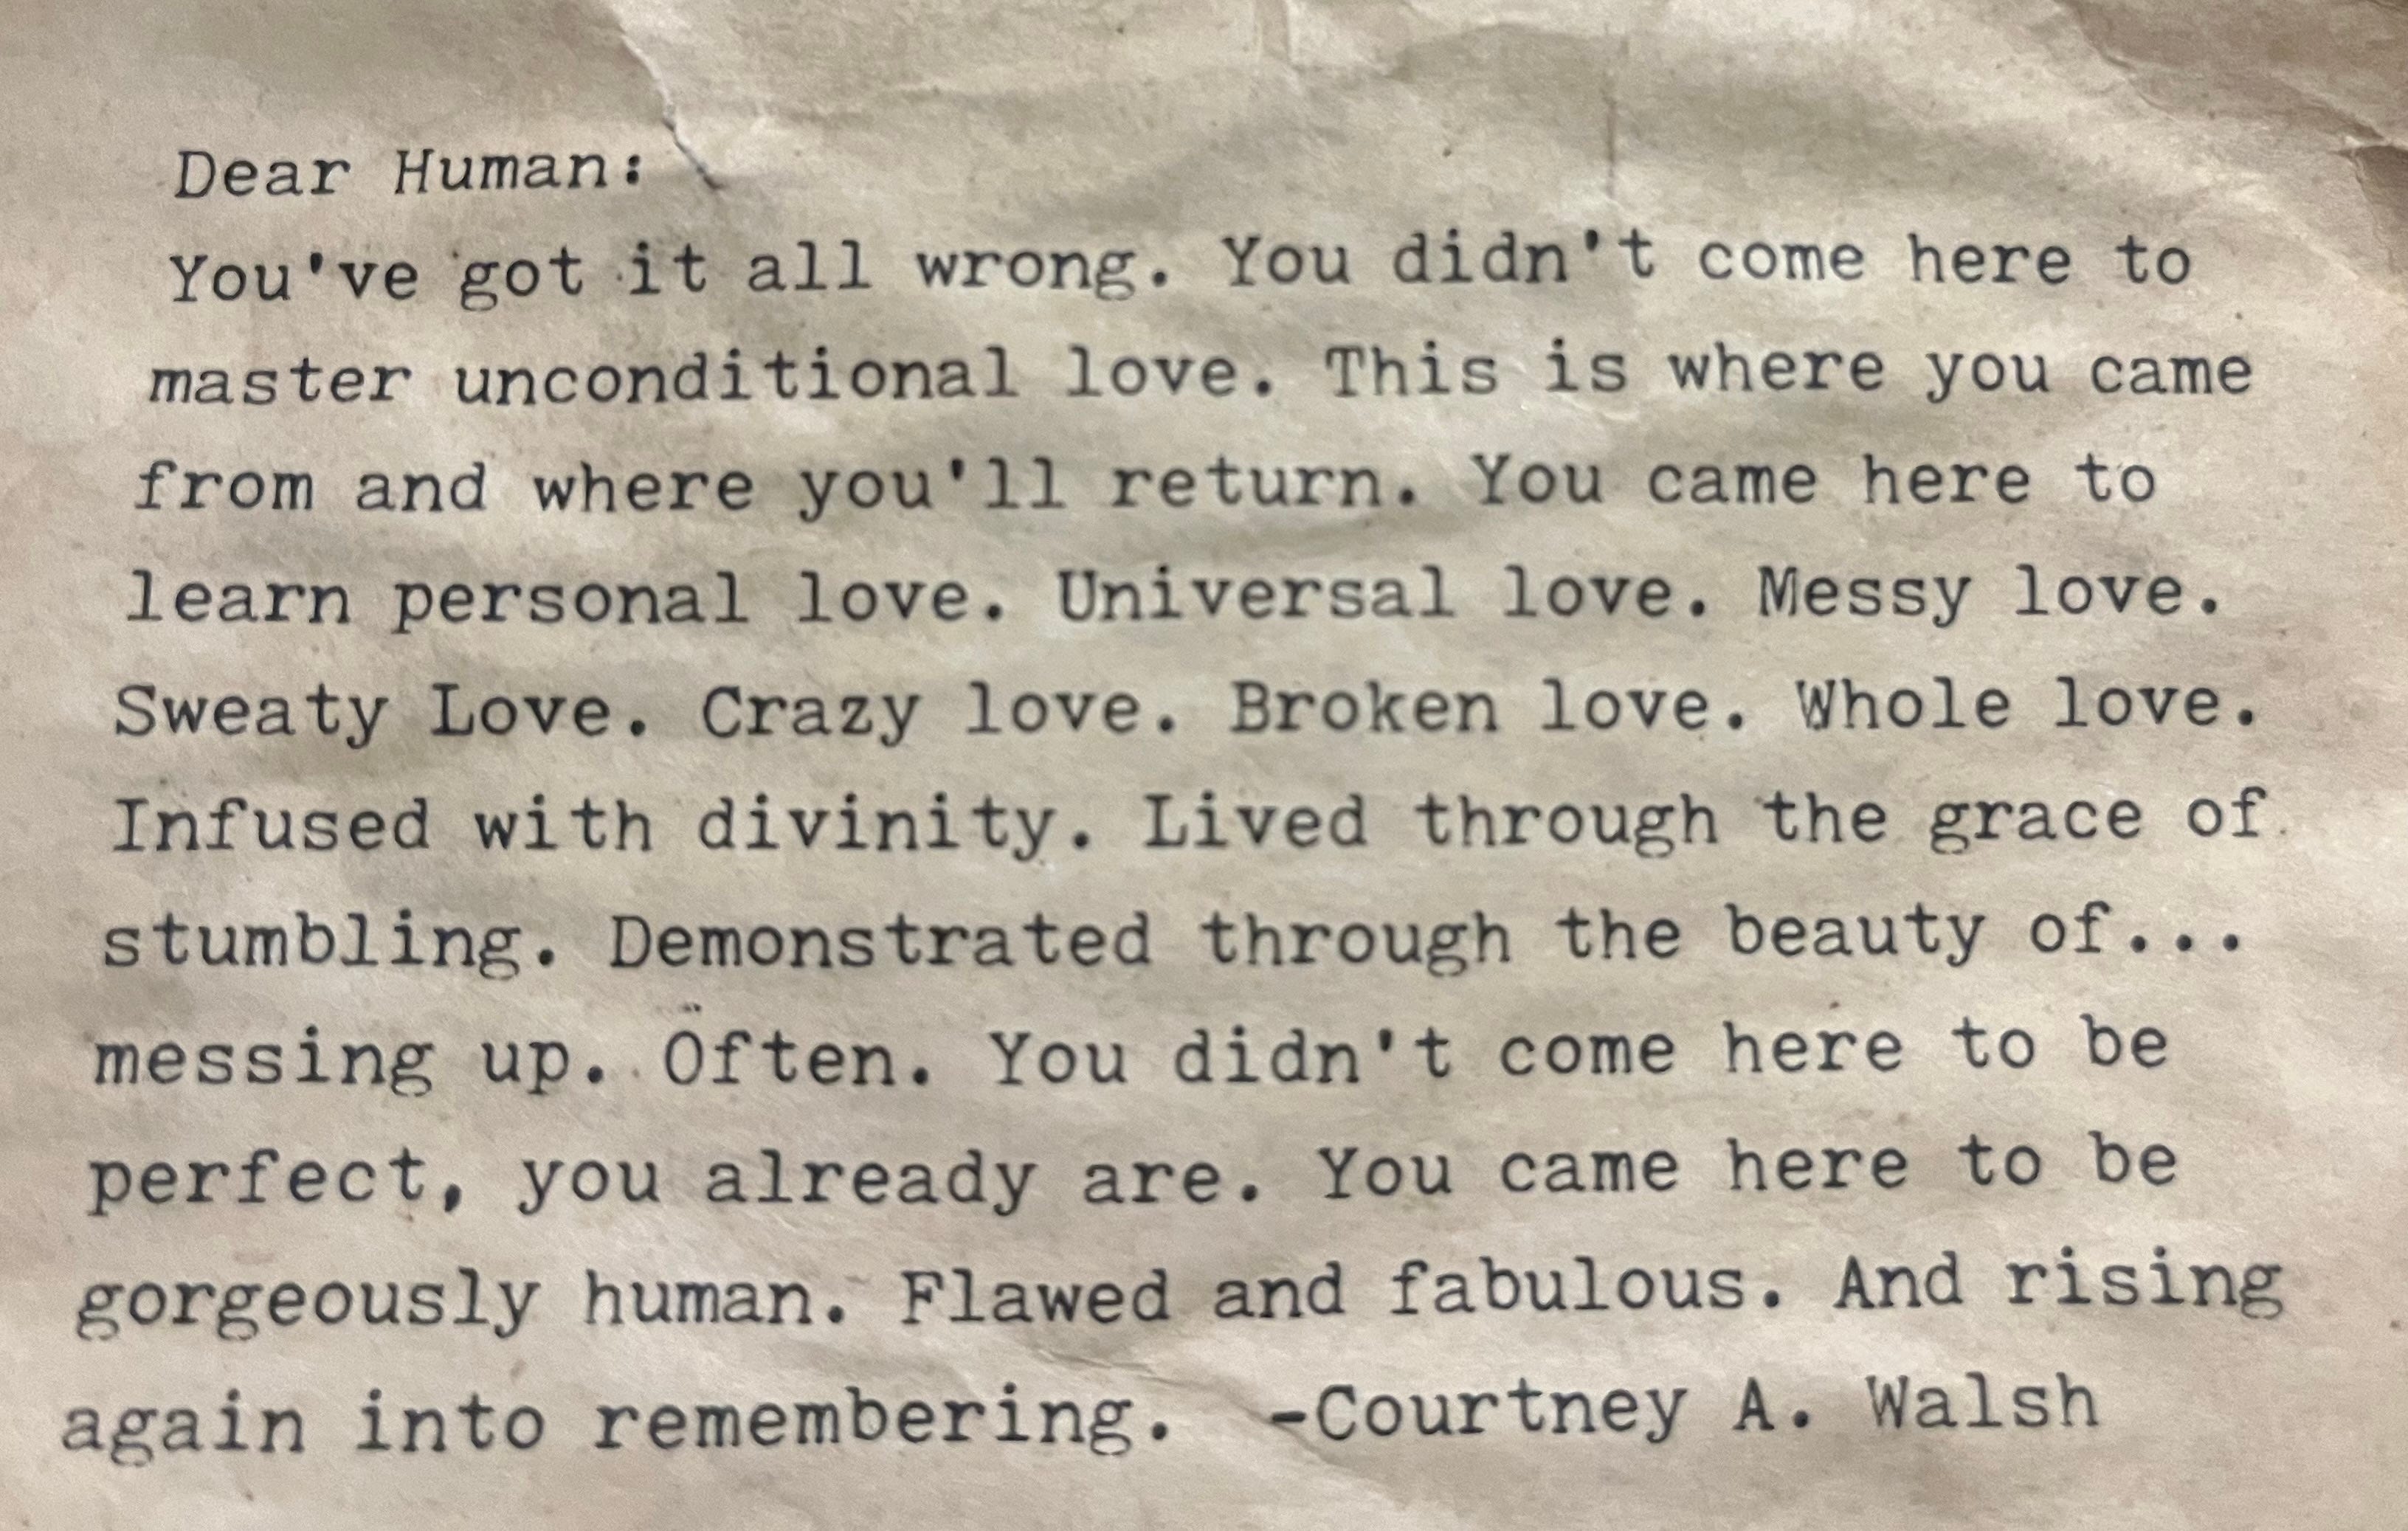 Dear Human:
You've got it all wrong. You didn't come here to
master unconditional love. This is where you came
from and where you'll return. You came here to
learn personal love. Universal love. Messy love.
Sweaty Love. Crazy love. Broken love. Whole love.
Infused with divinity. Lived through the grace of
stumbling. Demonstrated through the beauty of...
messing up. Often. You didn't come here to be
perfect, you already are. You came here to be
gorgeously human. Flawed and fabulous. And rising
again into remembering. -Courtney A. Walsh